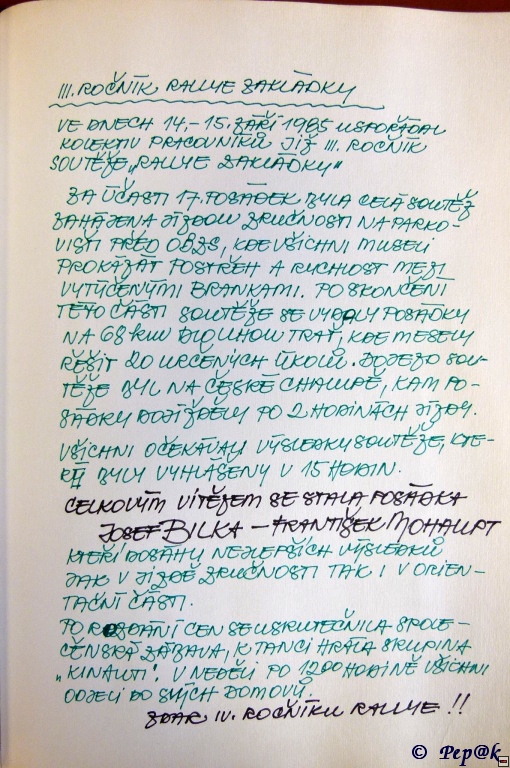 III. ROČNÍK RALLYE ZAKLÁDKY
VE DNECH 14.-15. ZÁŘÍ 1985 USPOŘÁDAL
KOLEKTIV PRACOVNÍKŮ JIŽ III. ROČNÍK
SOUTĚŽE „RALLYE ZAKLÁDKY"
ZA ÚČASTI 17. POSÁDEK BYLA CELÁ SOUTĚŽ
ZAHÁJENA JÍZDOU ZRUČNOSTI NA PARKO-
VIŠTI PŘED OBZS, KDE VŠICHNI MUSELI
PROKÁZAT POSTŘEH A RYCHLOST MEZI
VYTÝČENÝMI BRANKAMI. PO SKONČENÍ
TÉTO ČÁSTI SOUTĚŽE SE VYDALY POSÁDKY
NA 68 km DLOUHOU TRAŤ, KDE MUSELY
ŘEŠIT 20 URČENÝCH ÚKOLŮ. DOJEZD SOU-
TĚŽE BYL NA ČESKÉ CHALUPĚ, KAM PO-
SÁDKY DOJÍŽDĚLY PO 2 HODINÁCH JÍZDY.
VŠICHNI OČEKÁVALI VÝSLEDKY SOUTĚŽE, KTE-
RÉ BYLY VYHLÁŠENY V 15 HODIN.
CELKOVÝM VÍTĚZEM SE STALA POSÁDKA
JOSEF BILKA – FRANTIŠEK MOHAUPT
KTEŘÍ DOSÁHLI NEJLEPŠÍCH VÝSLEDKŮ
JAK V JÍZDĚ ZRUČNOSTI TAK I V ORIEN-
TAČNÍ ČÁSTI.
PO ROZDÁNÍ CEN SE USKUTEČNILA SPOLE-
ČENSKÁ ZÁBAVA, K TANCI HRÁLA SKUPINA
„KINAUTI". V NEDĚLI PO 1200 HODINĚ VŠICHNI
ODJELI DO SVÝCH DOMOVŮ.
ZDAR IV. ROČNÍKU RALLYE !!
© Pep@k